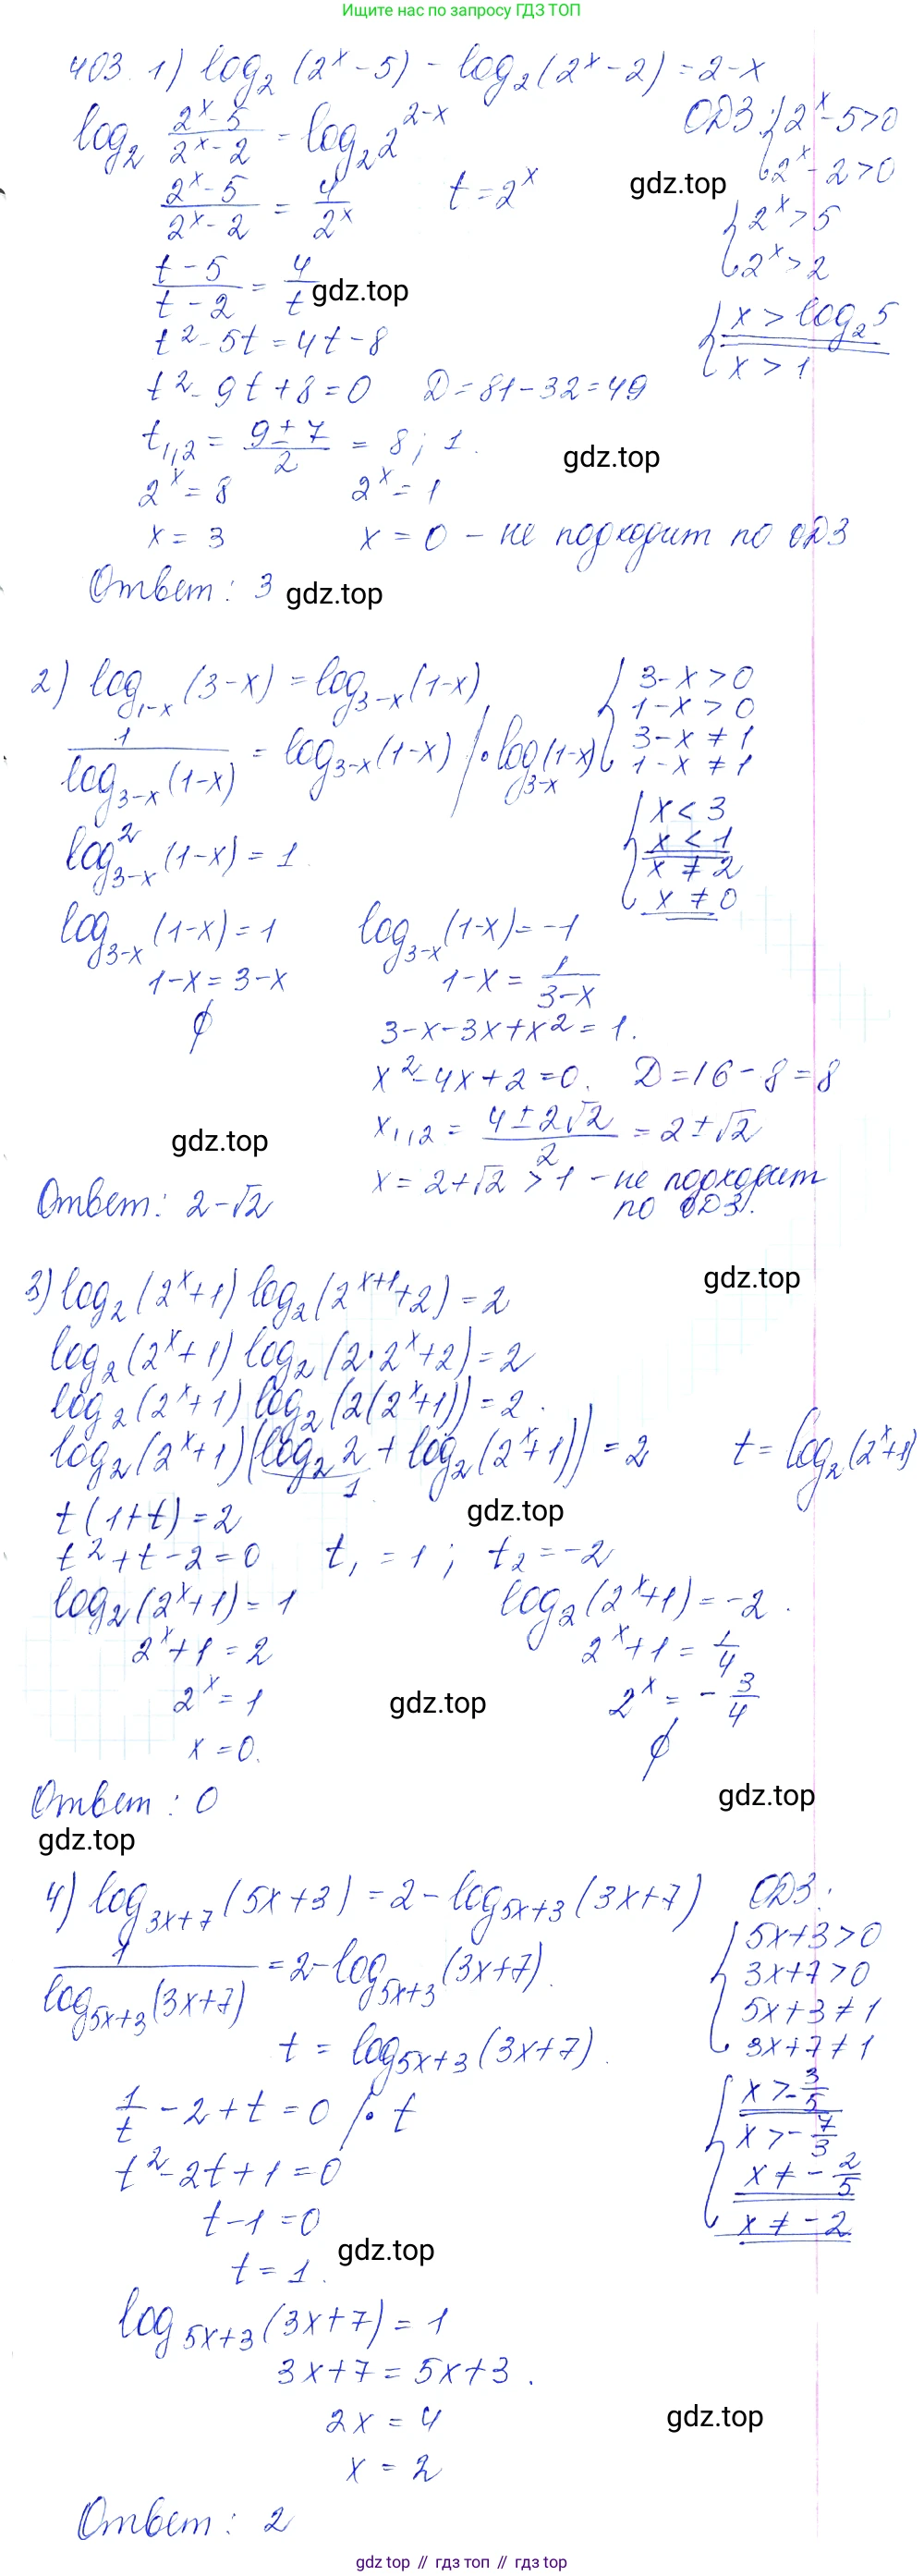 Ищите нас по запросу ГДЗ ТОП
403. 1) log₂(2ˣ-5) - log₂(2ˣ-2) = 2-x
log₂ (2ˣ-5)/(2ˣ-2) = log₂2²⁻ˣ ОДЗ: { 2ˣ-5>0
(2ˣ-5)/(2ˣ-2) = 4/2ˣ t=2ˣ gdz.top 2ˣ-2>0
{ 2ˣ>5
2ˣ>2
(t-5)/(t-2) = 4/t gdz.top
t²-5t=4t-8 { x>log₂5
x>1
t²-9t+8=0 D=81-32=49
t₁,₂ = (9±7)/2 = 8; 1. gdz.top
2ˣ=8 2ˣ=1
x=3 x=0 - не подходит по ОДЗ
Ответ: 3 gdz.top
2) log₁₋ₓ(3-x) = log₃₋ₓ(1-x) { 3-x>0
1-x>0
3-x≠1
1-x≠1
1/log₃₋ₓ(1-x) = log₃₋ₓ(1-x) |·log₃₋ₓ(1-x)
{ x<3
x<1
x≠2
x≠0
log²₃₋ₓ(1-x) = 1.
log₃₋ₓ(1-x)=1 log₃₋ₓ(1-x)=-1
1-x=3-x 1-x = 1/(3-x)
∅ 3-x-3x+x²=1.
x²-4x+2=0. D=16-8=8
gdz.top x₁,₂ = (4±2√2)/2 = 2±√2
x=2+√2>1 - не подходит
по ОДЗ.
Ответ: 2-√2
gdz.top
3) log₂(2ˣ+1) log₂(2ˣ⁺¹+2)=2
log₂(2ˣ+1) log₂(2·2ˣ+2)=2
log₂(2ˣ+1) log₂(2(2ˣ+1))=2.
log₂(2ˣ+1)(log₂2 + log₂(2ˣ+1)) = 2 t=log₂(2ˣ+1)
1
t(1+t)=2 gdz.top
t²+t-2=0 t₁=1; t₂=-2
log₂(2ˣ+1)=1 log₂(2ˣ+1)=-2.
2ˣ+1=2 2ˣ+1=1/4
2ˣ=1 gdz.top 2ˣ=-3/4
x=0. ∅
Ответ: 0 gdz.top
gdz.top
4) log₃ₓ₊₇(5x+3)=2-log₅ₓ₊₃(3x+7) ОДЗ:
{ 5x+3>0
3x+7>0
5x+3≠1
3x+7≠1
1/log₅ₓ₊₃(3x+7) = 2-log₅ₓ₊₃(3x+7).
t = log₅ₓ₊₃(3x+7).
{ x>-3/5
x>-7/3
x≠-2/5
x≠-2
1/t - 2+t=0 |·t
t²-2t+1=0
t-1=0
t=1. gdz.top
log₅ₓ₊₃(3x+7)=1
3x+7=5x+3.
2x=4 gdz.top
x=2
Ответ: 2
gdz top // гдз топ // gdz top